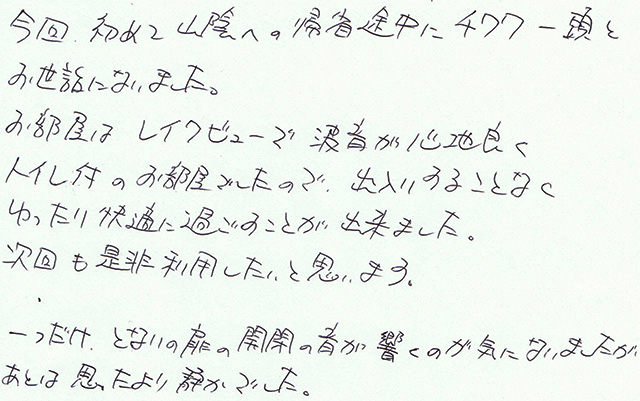 今回、初めて山陰への帰省途中にチワワ一頭と
お世話になりました。
お部屋は レイクビューで 波音が心地良く
トイレ付のお部屋でしたので、出入りすることなく
ゆったり快適に過ごすことが出来ました。
次回も是非利用したいと思います。
一つだけ、となりの扉の開閉の音が響くのが気になりましたが
あとは思ったより静かでした。